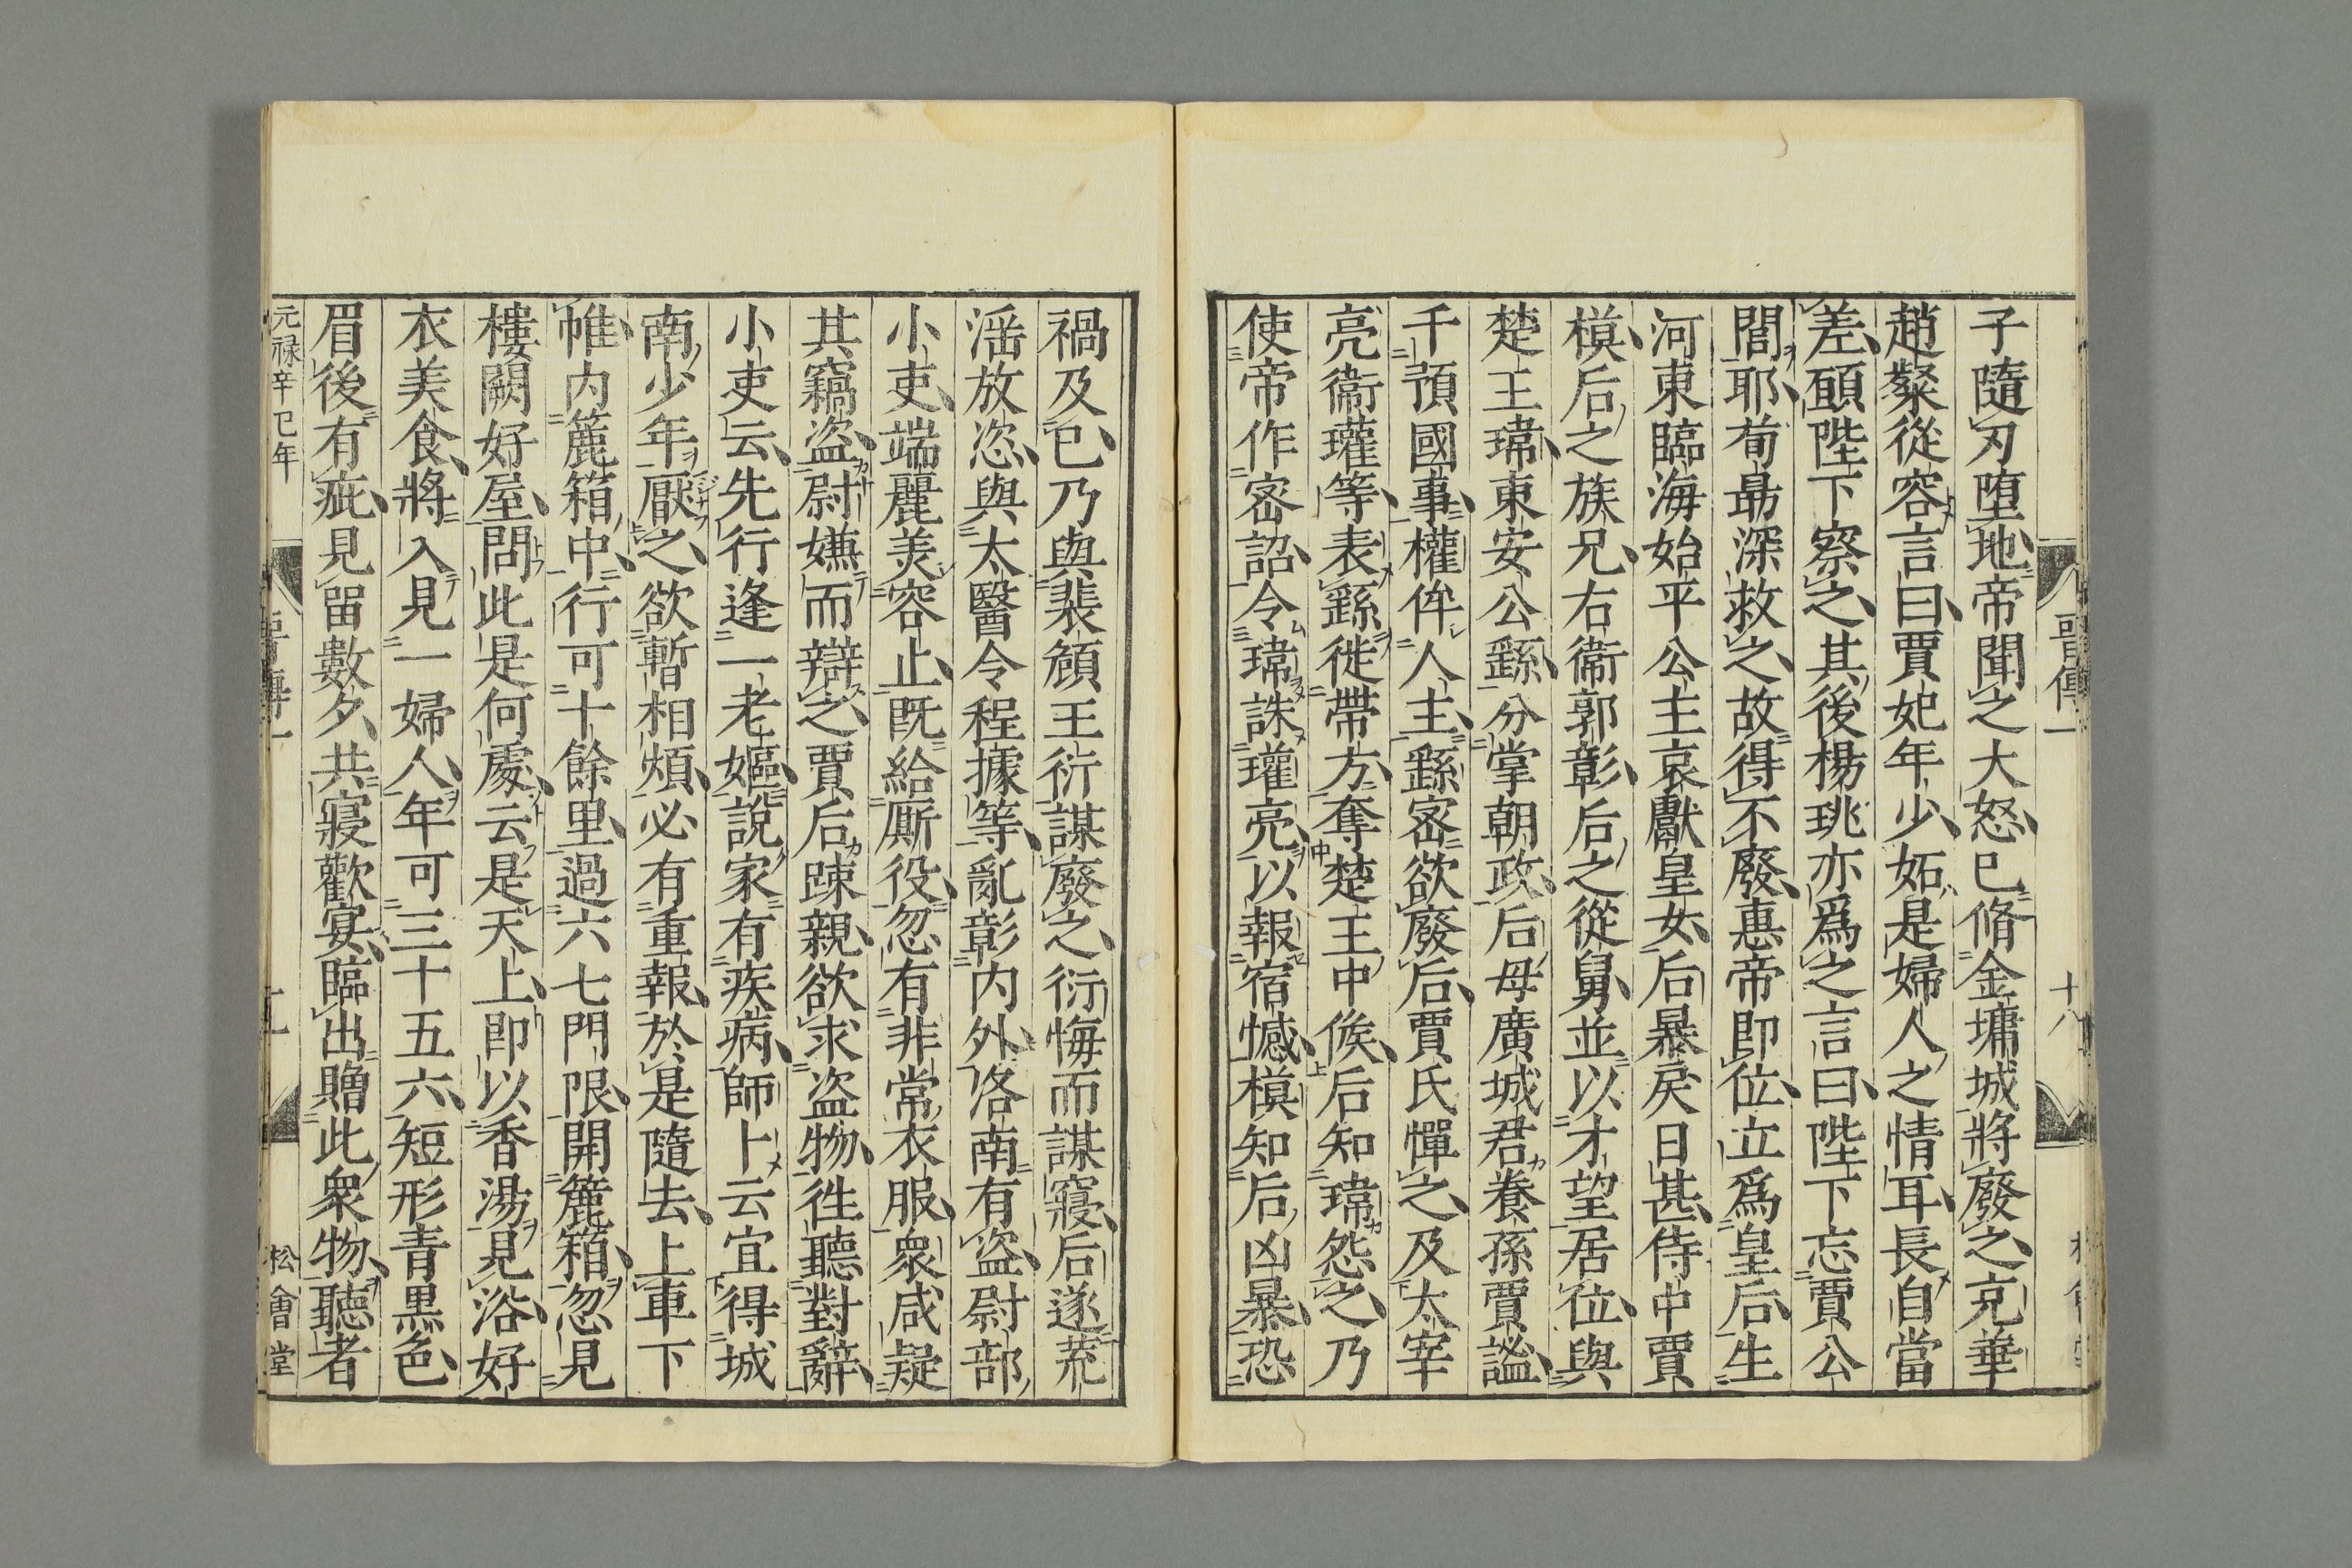 晉傳一 十八
子隨刃墮地帝聞之大怒已脩金墉城將廢之充華
趙粲從容言曰賈妃年少妬是婦人之情耳長自當
差願陛下察之其後楊珧亦爲之言曰陛下忘賈公
閭耶荀勗深救之故得不廢惠帝即位立爲皇后生
河東臨海始平公主哀獻皇女后暴戾日甚侍中賈
模后之族兄右衞郭彰后之從舅並以才望居位與
楚王瑋東安公繇分掌朝政后母廣城君養孫賈謐
干預國事權侔人主繇密欲廢后賈氏憚之及太宰
亮衞瓘等表繇徙帶方奪楚王中候后知瑋怨之乃
使帝作密詔令瑋誅瓘亮以報宿憾模知后凶暴恐
禍及已乃與裴頠王衍謀廢之衍悔而謀寢后遂荒
滛放恣與太醫令程據等亂彰内外洛南有盗尉部
小吏端麗美容止既給厮役忽有非常衣服衆咸疑
其竊盗尉嫌而辯之賈后踈親欲求盗物徃聽對辭
小吏云先行逢一老嫗說家有疾病師卜云宜得城
南少年厭之欲暫相煩必有重報於是隨去上車下
帷内簏箱中行可十餘里過六七門限開簏箱忽見
樓闕好屋問此是何處云是天上即以香湯見浴好
衣美食將入見一婦人年可三十五六短形青黒色
眉後有疵見留數夕共寢歡宴臨出贈此衆物聽者
元禄辛巳年 松會堂